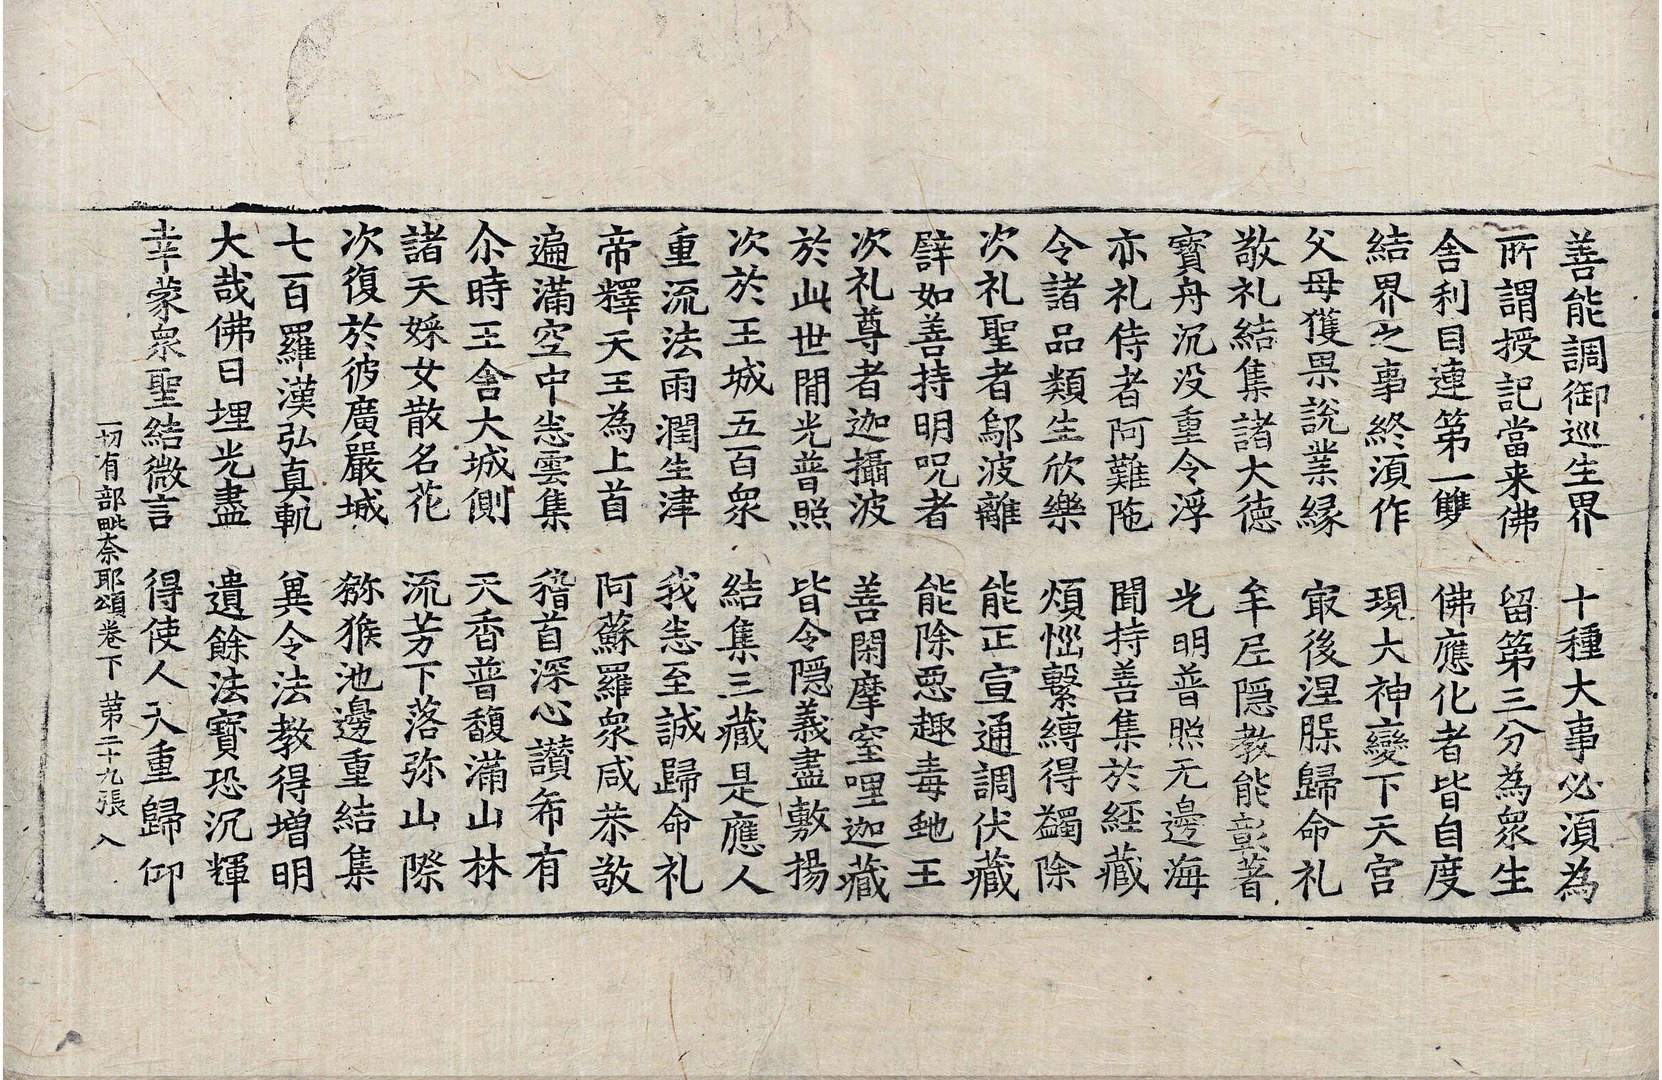 善能調御巡生界　十種大事必湏為
所謂授記當来佛　留第三分為衆生
舎利目連第一雙　佛應化者皆自度
結界之事終湏作　現大神變下天宮
父母獲果說業縁　㝡後涅槃歸命礼
敬礼結集諸大德　牟尼隠教能彰著
寳舟沉没重令浮　光明普照无邊海
亦礼侍者阿難陁　聞持善集於經藏
令諸品類生欣樂　煩惱繫縛得蠲除
次礼聖者鄔波離　能正宣通調伏藏
譬如善持明呪者　能除惡趣毒虵王
次礼尊者迦攝波　善閑摩窒哩迦藏
於此世間光普照　皆令隠義盡敷揚
次於王城五百衆　結集三藏是應人
重流法雨潤生津　我悉至誠歸命礼
帝釋天王為上首　阿蘇羅衆咸恭敬
遍滿空中悉雲集　稽首深心讃希有
尒時王舎大城側　天香普馥滿山林
諸天婇女散名花　流芳下落弥山際
次復於彼廣嚴城　獼猴池邊重結集
七百羅漢弘真軌　兾令法教得増明
大哉佛日埋光盡　遺餘法寳恐沉輝
幸蒙衆聖結微言　得使人天重歸仰
一切有部毗奈耶頌卷下　第二十九張　入